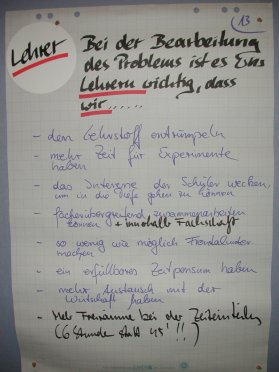 13
Lehrer
Bei der Bearbeitung
des Problems ist es Euch
Lehrern wichtig, dass
wir......
- den Lehrstoff entrümpeln
- mehr Zeit für Experimente
haben
- das Interesse der Schüler wecken,
um in die Tiefe gehen zu können
- fächerübergreifend zusammenarbeiten
können + innerhalb Fachschaft
- so wenig wie möglich Frontalunter.
machen
- ein erfüllbares Zeitpensum haben
- mehr Austausch mit der
Wirtschaft haben
- Mehr Freiräume bei der Zeiteinteilung
(6 Stunde statt 45'!!)